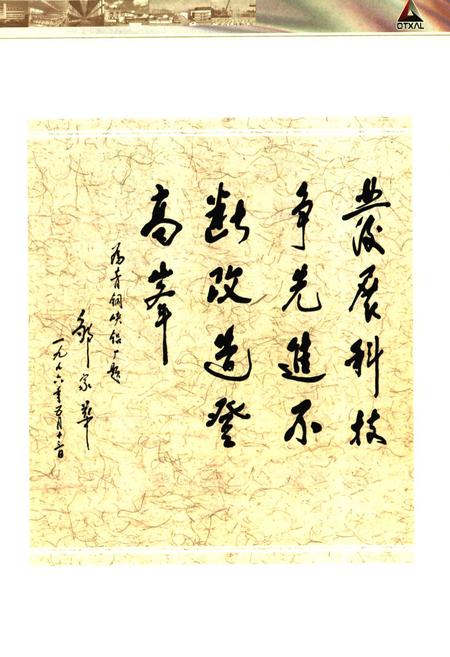 QTXAL
發展科技
争先進不
断改造登
高峯
为青铜峡铝厂题
邹家华
一九九六年五月十三日